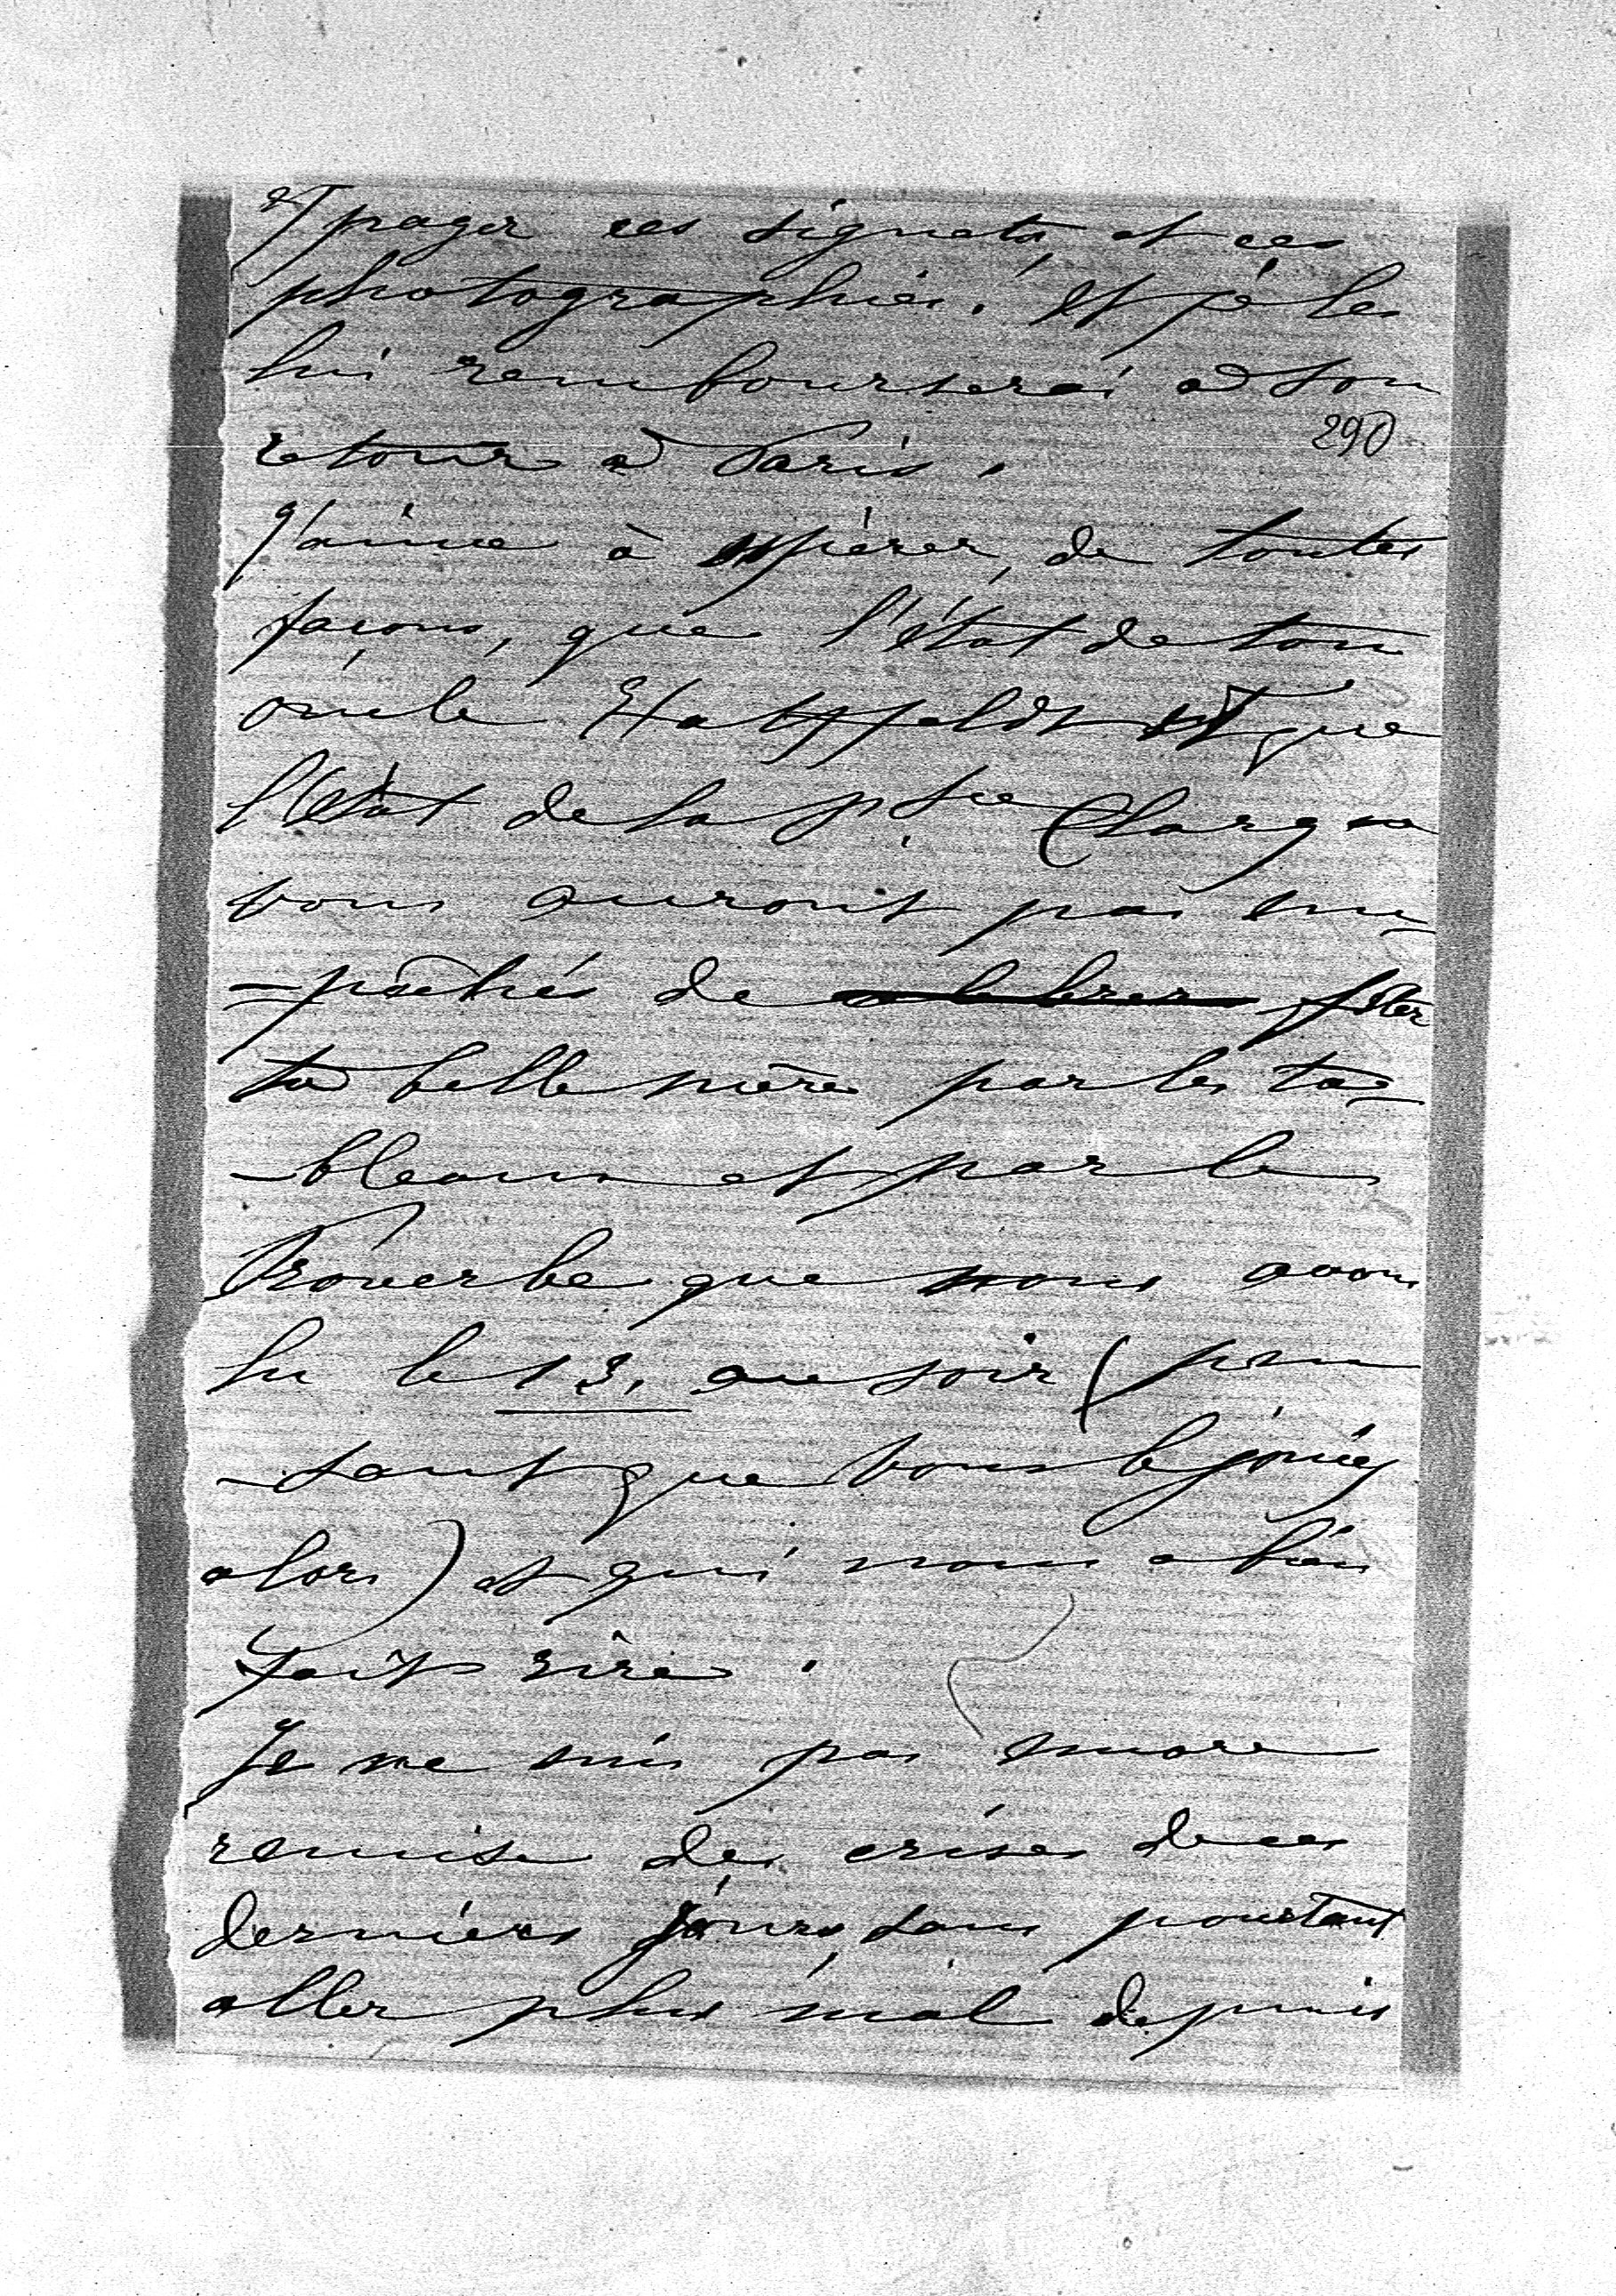 et payer ces signets, et ces
photographies. Et je les
lui rembourserai à son
290
retour à Paris.
J'aime à espérer, de toutes
façons, que l'état de ton
oncle Hatzfeldt et que
l'état de la Psse Clary ne
vous auront pas em-
-pêchés de célébrer fêter
ta belle mère par les ta-
-bleaux et par le
Proverbe que nous avons
lu le 13, au soir (pen
-sant que vous le jouiez
alors) et qui nous a bien
fait rire.
Je ne suis pas encore
remise des crises de ces
derniers jours, sans pourtant
aller plus mal depuis